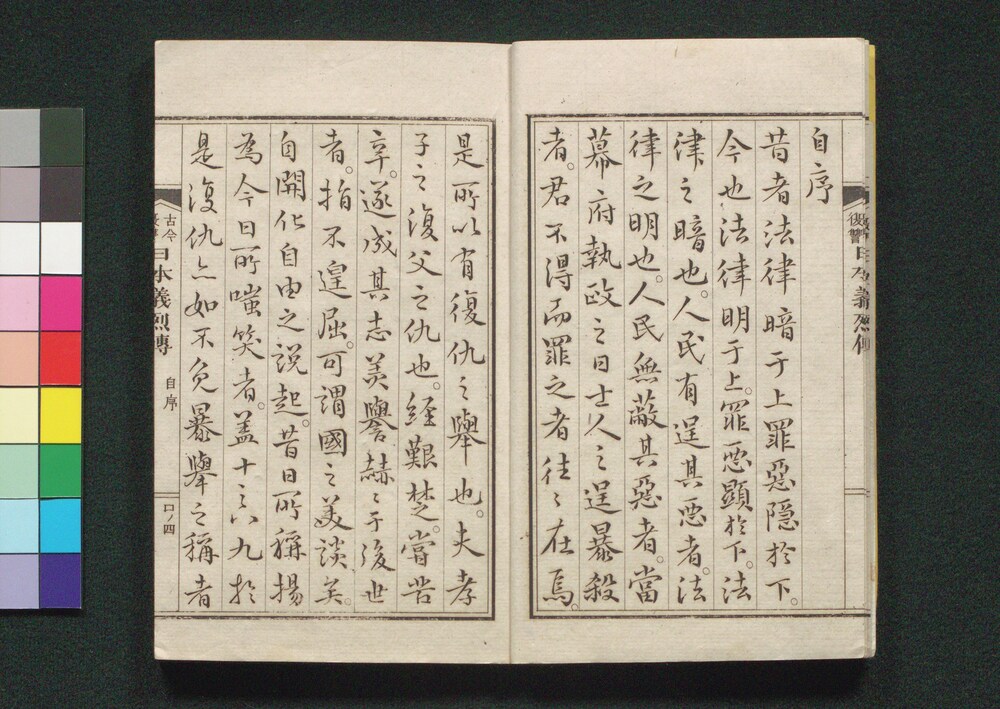 自序
昔者法律暗于上罪惡隱於下。
今也法律明于上。罪惡顯於下。法
律之暗也。人民有逞其惡者。法
律之明也。人民無蔽其惡者。當
幕府執政之日士人之逞暴殺
者。君不得而罪之者往〻在焉。
是所以有復仇之舉也。夫孝
子之復父之仇也。經艱楚。嘗苦
辛。遂成其志美譽赫〻于後世
者。指不遑屈。可謂國之美談矣。
自開化自由之說起。昔日所稱揚
為今日所嗤笑者。蓋十之八九於
是復仇亦如不免暴舉之稱者
古今
日本義烈傳
自序
口ノ四